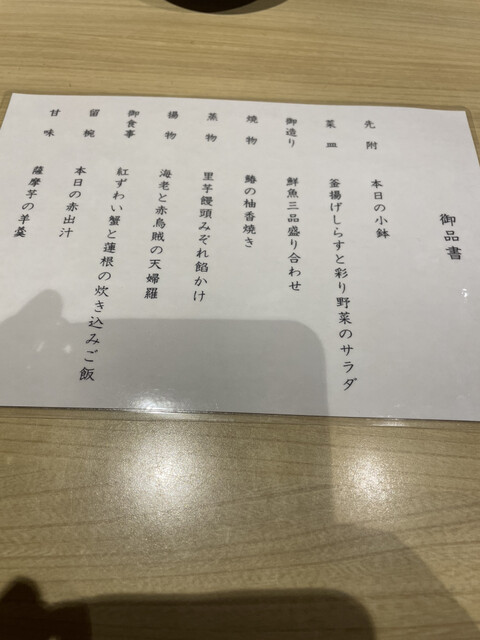 御品書
先附
本日の小鉢
菜皿
釜揚げしらすと彩り野菜のサラダ
御造り
鮮魚三品盛り合わせ
焼物
鰆の柚香焼き
蒸物
里芋饅頭みぞれ餡かけ
揚物
海老と赤烏賊の天婦羅
御食事
紅ずわい蟹と蓮根の炊き込みご飯
留椀
本日の赤出汁
甘味
薩摩芋の羊羹